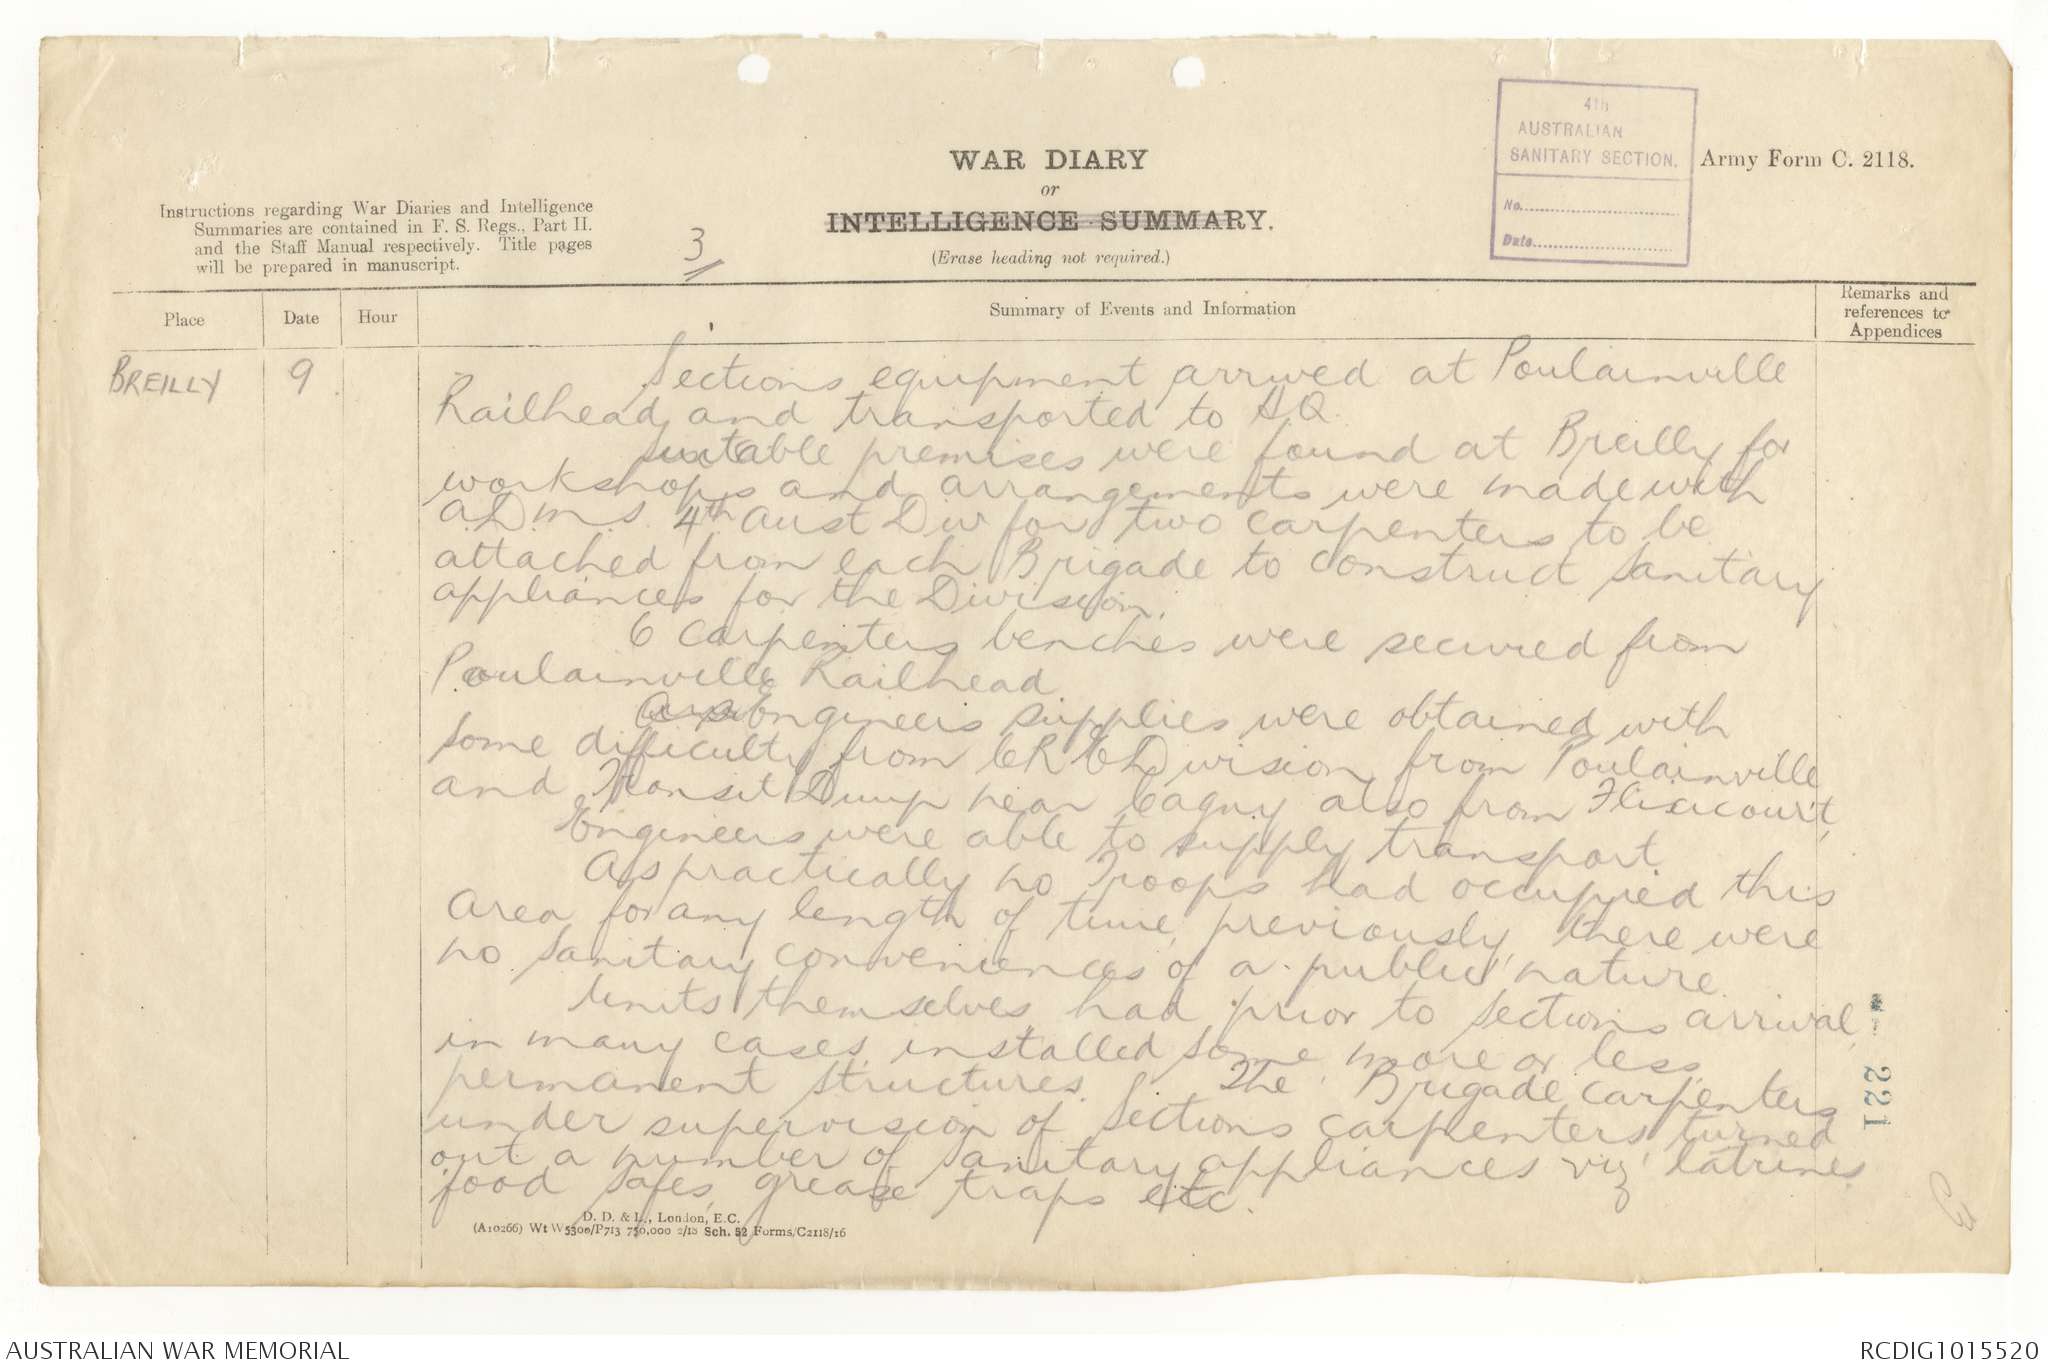 4th
AUSTRALIAN
SANITARY SECTION.
No.
Date
Army Form C. 2118.
WAR DIARY
or
INTELLIGENCE SUMMARY.
(Erase heading not required.)
Instructions regarding War Diaries and Intelligence
Summaries are contained in F. S. Regs., Part II.
and the Staff Manual respectively. Title pages
will be prepared in manuscript.
3
Place
Date
Hour
Summary of Events and Information
Remarks and
references to
Appendices
BREILLY
9.
Sections equipment arrived at Poulainville
Railhead and transported to HQ.
Suitable premises were found at Breilly for
workshops and arrangements were made with
ADMS 4th Aust Div for two carpenters to be
attached from each Brigade to construct Sanitary
appliances for the Division.
6 Carpenters benches were secured from
Poulainville Railhead.
Engineers supplies were obtained with
some difficulty from CRE Division from Poulainville
and Transit Dump near Cagny also from Flixicourt,
Engineers were able to supply transport.
As practically no Troops had occupied this
Area for any length of time previously, there were
no sanitary conveniences of a public nature.
Units themselves had prior to Sections arrival,
in many cases installed some more or less
permanent structures. The Brigade carpenters
under supervision of Sections carpenters turned
out a number of Sanitary appliances viz latrines
food safes, grease traps etc.
221
D. D. & L., London, E.C.
(A10266) Wt W5300/P713 750,000 2/18 Sch. 52 Forms/C2118/16
AUSTRALIAN WAR MEMORIAL
RCDIG1015520